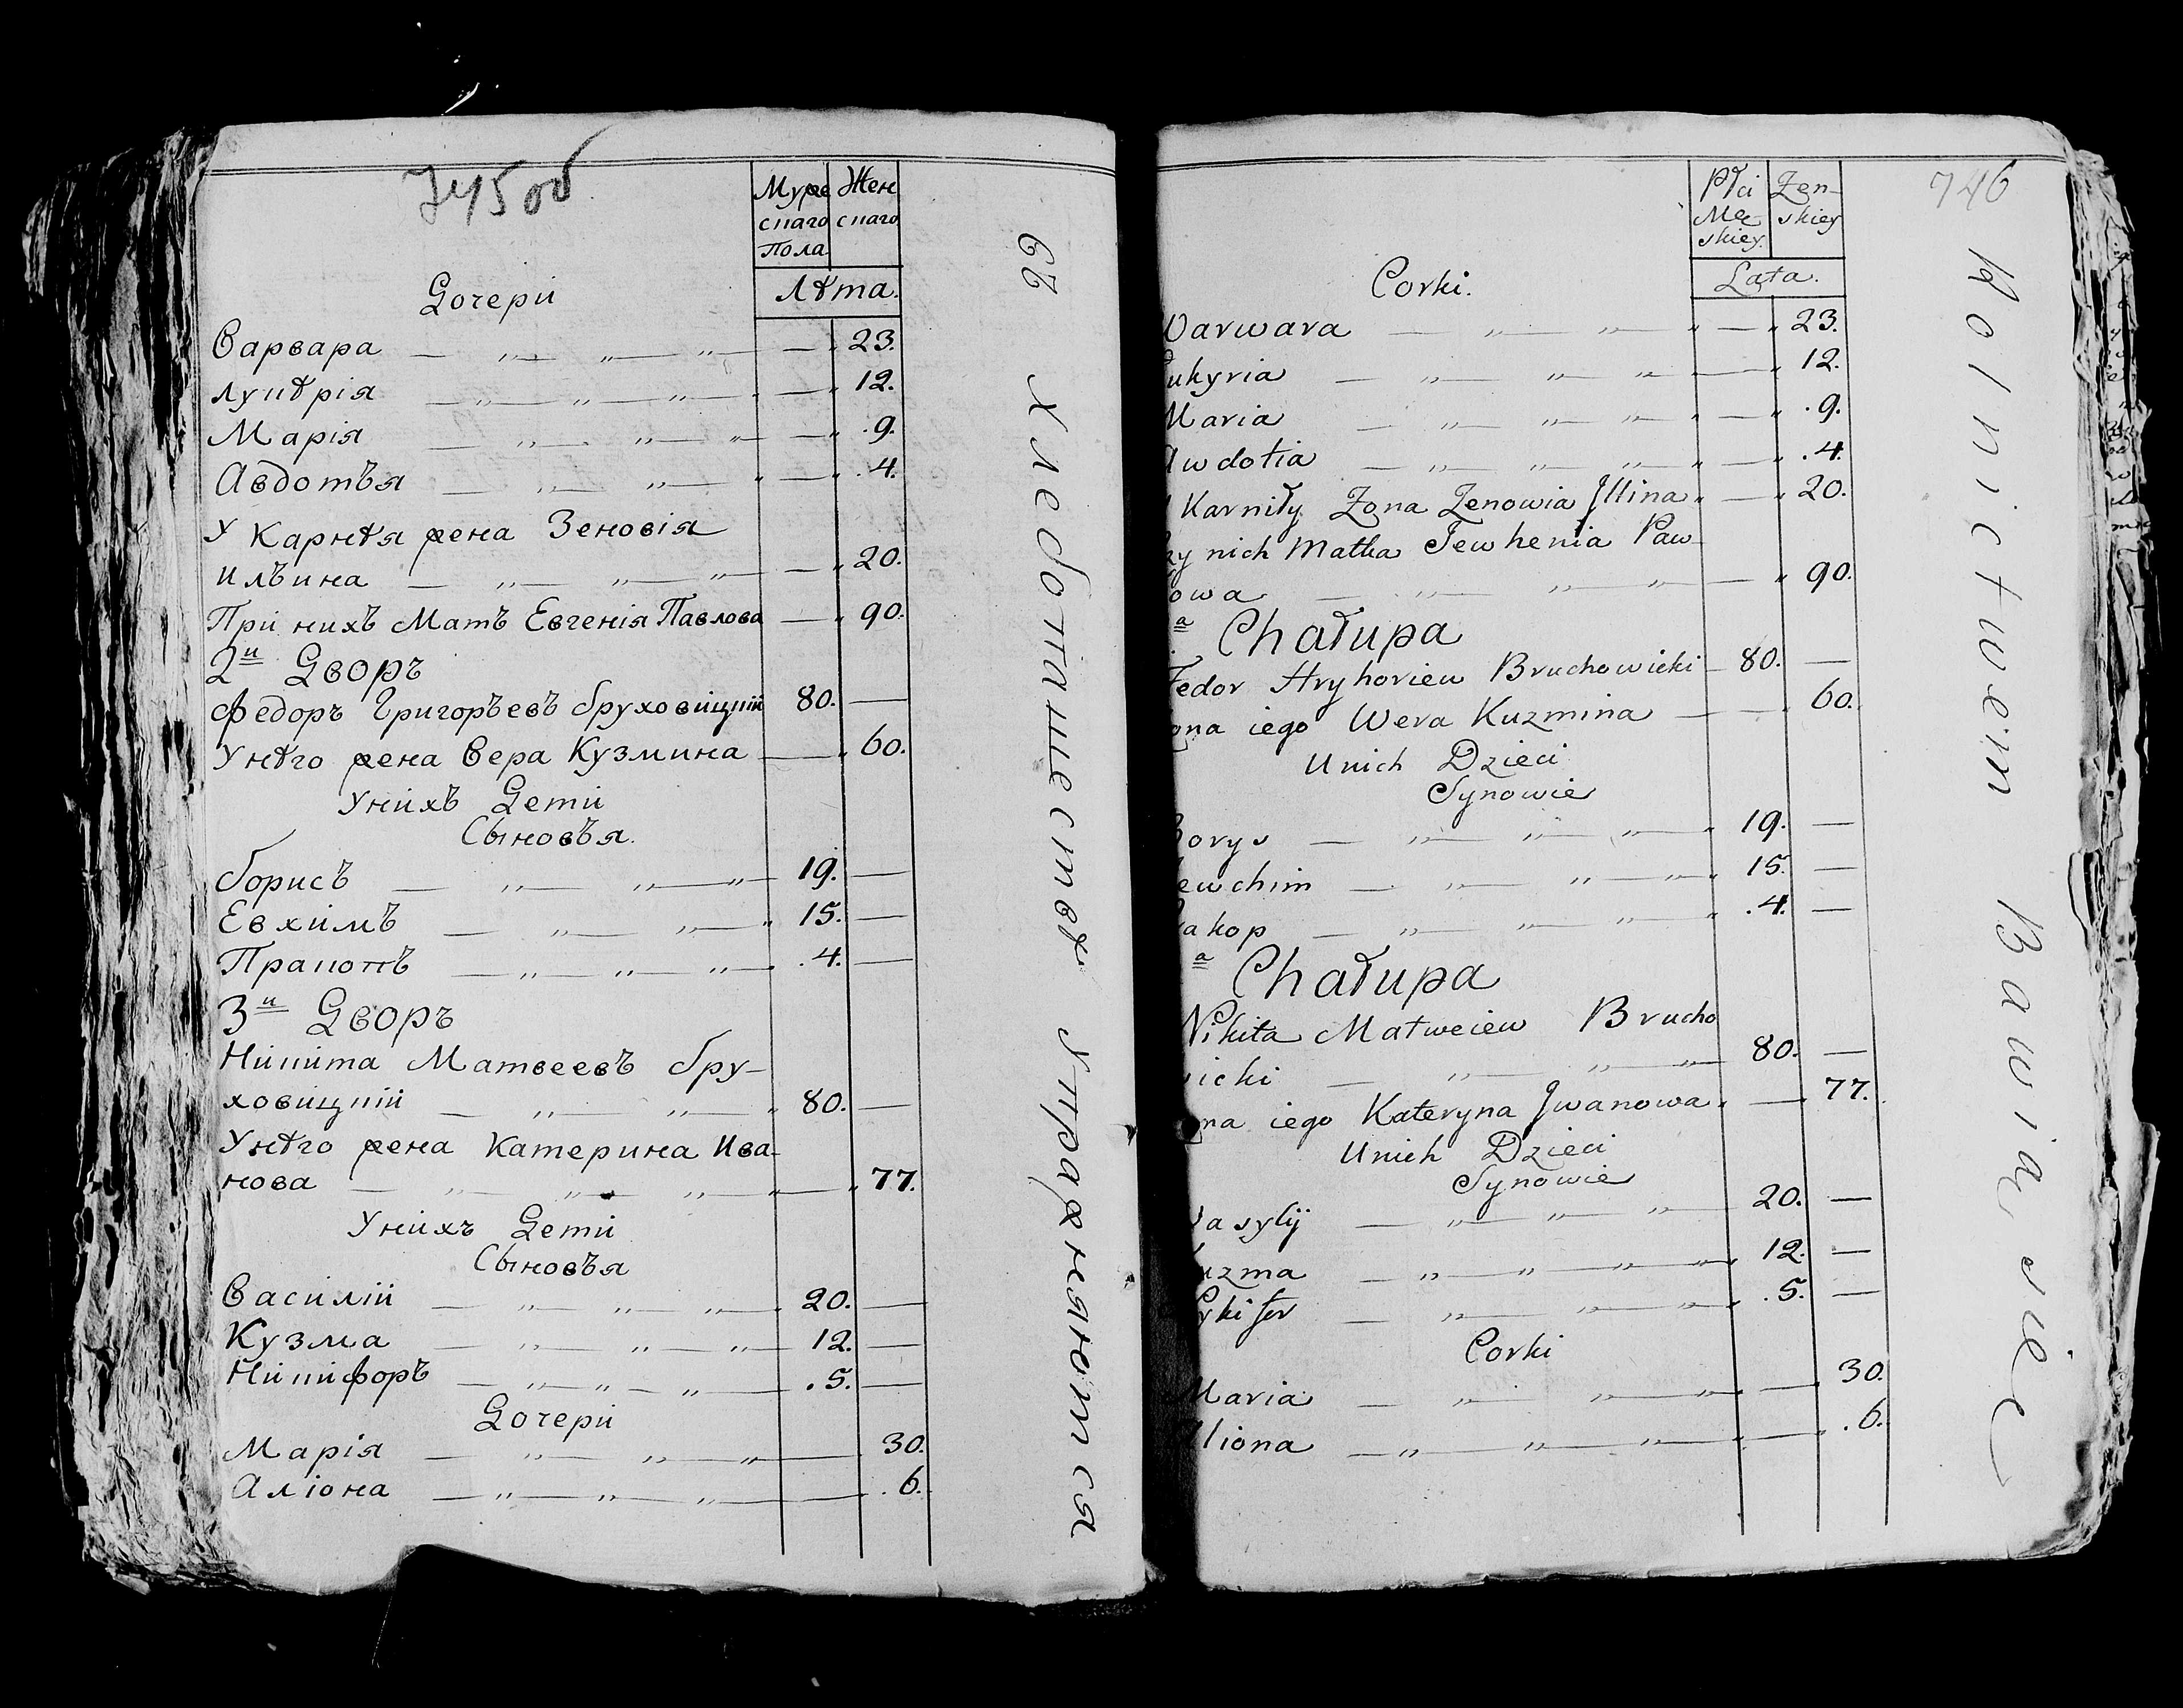 745об
Муже Жен
скаго скаго
Пола
Лѣта.
Дочери
Варвара — „ — „ — „ — — „ 23.
Лукѣрія — „ — „ — „ — „ — „ 12.
Марія — „ — „ — „ — — „ .9.
Авдотъя — „ — „ — „ — „ .4.
У Карнѣя жена Зеновія
Илъина — „ — „ — „ — — „ 20.
При нихъ Матъ Евгенія Павлова — „ 90.
2й Дворъ
Федоръ Григоръевъ Бруховицкій 80. —
У нѣго жена Вера Кузмина — „ 60.
У нихъ Дети
Сыновъя.
Борисъ — „ — „ — „ — 19. —
Евхимъ — „ — „ — „ 15. —
Пракопъ — „ — „ — „ — .4. —
3й Дворъ
Никита Матвеевъ Бру-
ховицкій — „ — „ — „ 80. —
У нѣго жена Катерина Ива-
нова — „ — „ — „ — „ — „ 77.
У нихъ Дети
Сыновъя
Василій — „ — „ — „ — 20. —
Кузма — „ — „ — „ — 12. —
Никифоръ — „ — „ — „ — .5. —
Дочери
Марія — „ — „ — „ — 30.
Аліона — „ — „ — „ — .6.
въ Хлебопашествѣ Упражняютси
746
Płci Żen-
Mę skiey
skiey.
Lata.
Corki.
Warwara — „ — „ — „ — „ 23.
ukyria — „ — „ — „ — „ 12.
Maria — „ — „ — „ — „ — „ .9.
Awdotia — „ — „ — „ — „ — „ .4.
Karniły Żona Zenowia Illina „ — „ 20.
zy nich Matka Jewhenia Paw-
łowa — „ — „ — — „ 90.
a Chałupa
Fedor Hryhoriew Bruchowicki — 80. —
ona iego Wera Kuzmina — — „ 60.
U nich Dzieci
Synowie
Borys — „ — „ — „ — „ 19. —
ewchim — „ — „ — „ „ 15. —
akop — „ — „ — „ — „ .4. —
a Chałupa
Nikita Matweiew Brucho
wicki — „ — „ — „ — 80. —
ona iego Kateryna Iwanowa „ — „ 77.
U nich Dzieci
Synowie
Wasylij — „ — „ — „ — 20. —
uzma — „ — „ — „ „ 12. —
ykifor — „ — „ — „ — „ .5. —
Corki
Maria — „ — „ — „ — „ — „ 30.
liona — „ — „ — „ — „ — „ .6.
Rolnictwem Bawią sie